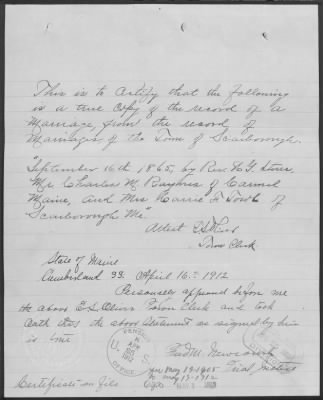 This is to Certify that the following
is a true Copy of the record of a
Marriage, from the record of
Marriages of the Town of Scarborough.
"September 16th 1865, by Rev
Mr. Charles M. of Carmel
Maine, and Mrs Carrie F.
Scarborough Me."
Attest
Town Clerk
State of Maine
Cumberland SS. April 16th 1912
Personally appeared before me
the above Town Clerk and took
oath that the above statement as signed by him
is true
Fred M. Newcomb
Trial Justice
PENSION
OFFICE
U. S.
APR
1912
May 19-1905
to May 19-1912
Certificate on file